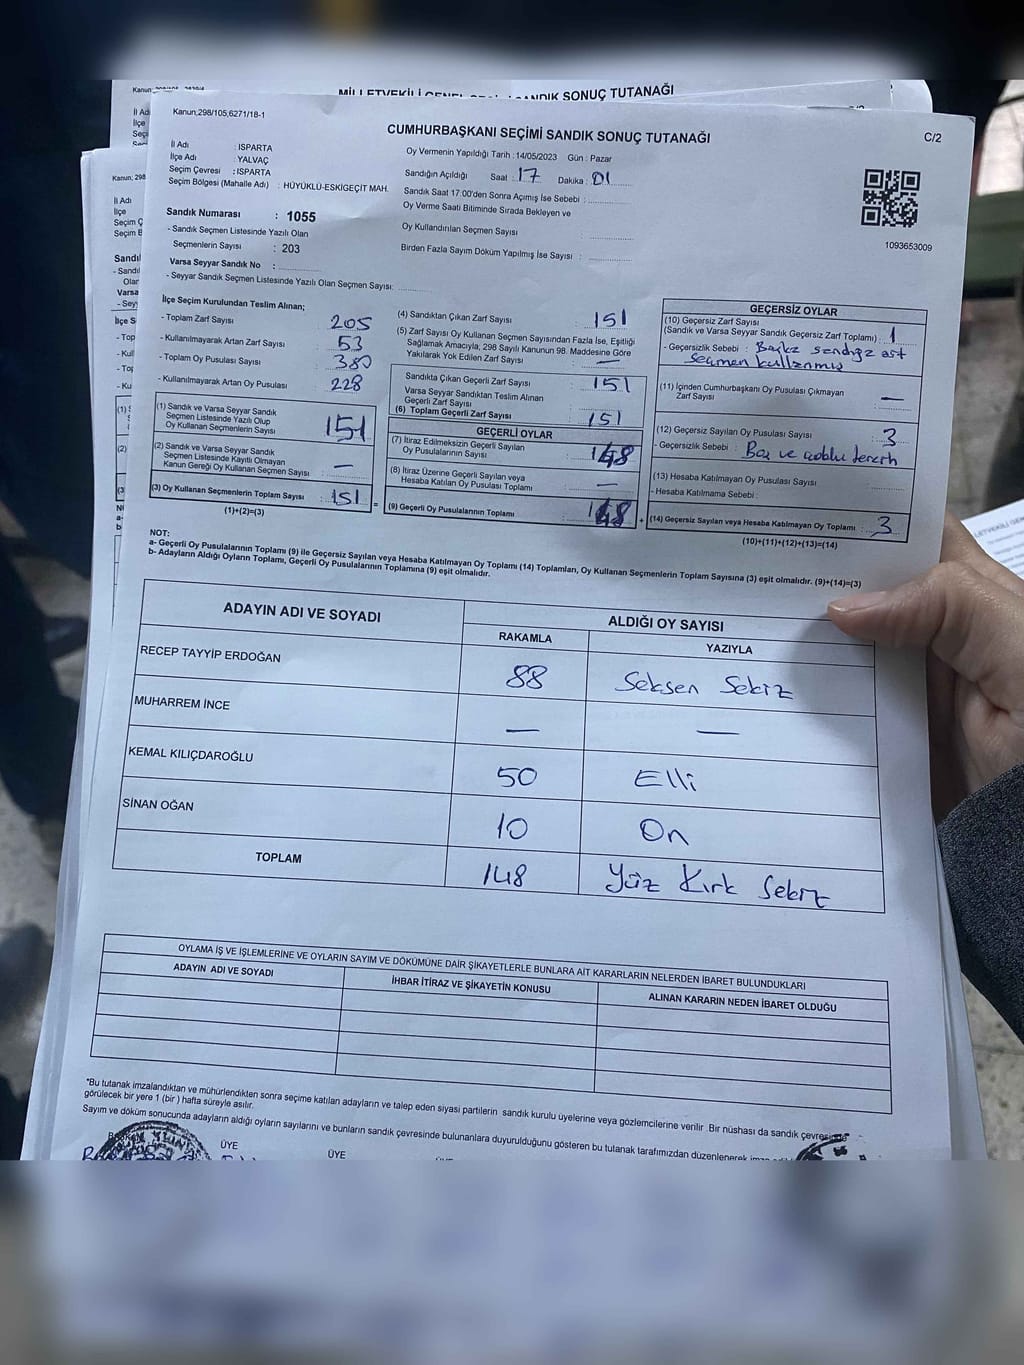 MİLLETVEKİLİ GENEL SANDIK SONUÇ TUTANAĞI
Kanun;298/105,6271/18-1
CUMHURBAŞKANI SEÇİMİ SANDIK SONUÇ TUTANAĞI
C/2
İl Adı : ISPARTA
İlçe Adı : YALVAÇ
Seçim Çevresi : ISPARTA
Seçim Bölgesi (Mahalle Adı) : HÜYÜKLÜ-ESKİGEÇİT MAH.
Sandık Numarası : 1055
- Sandık Seçmen Listesinde Yazılı Olan
Seçmenlerin Sayısı : 203
Varsa Seyyar Sandık No :
- Seyyar Sandık Seçmen Listesinde Yazılı Olan Seçmen Sayısı:
Oy Vermenin Yapıldığı Tarih : 14/05/2023 Gün : Pazar
Sandığın Açıldığı Saat : 17 Dakika : 01
Sandık Saat 17:00'den Sonra Açılmış İse Sebebi :
Oy Verme Saati Bitiminde Sırada Bekleyen ve
Oy Kullandırılan Seçmen Sayısı :
Birden Fazla Sayım Döküm Yapılmış İse Sayısı :
1093653009
İlçe Seçim Kurulundan Teslim Alınan;
- Toplam Zarf Sayısı : 205
- Kullanılmayarak Artan Zarf Sayısı : 53
- Toplam Oy Pusulası Sayısı : 380
- Kullanılmayarak Artan Oy Pusulası : 228
(1) Sandık ve Varsa Seyyar Sandık
Seçmen Listesinde Yazılı Olup
Oy Kullanan Seçmenlerin Sayısı : 151
(2) Sandık ve Varsa Seyyar Sandık
Seçmen Listesinde Kayıtlı Olmayan
Kanun Gereği Oy Kullanan Seçmen Sayısı : —
(3) Oy Kullanan Seçmenlerin Toplam Sayısı : 151
(1)+(2)=(3)
(4) Sandıktan Çıkan Zarf Sayısı : 151
(5) Zarf Sayısı Oy Kullanan Seçmen Sayısından Fazla İse, Eşitliği
Sağlamak Amacıyla, 298 Sayılı Kanunun 98. Maddesine Göre
Yakılarak Yok Edilen Zarf Sayısı : —
Sandıkta Çıkan Geçerli Zarf Sayısı : 151
Varsa Seyyar Sandıktan Teslim Alınan
Geçerli Zarf Sayısı :
(6) Toplam Geçerli Zarf Sayısı : 151
GEÇERLİ OYLAR
(7) İtiraz Edilmeksizin Geçerli Sayılan
Oy Pusulalarının Sayısı : 148
(8) İtiraz Üzerine Geçerli Sayılan veya
Hesaba Katılan Oy Pusulası Toplamı : —
(9) Geçerli Oy Pusulalarının Toplamı : 148
GEÇERSİZ OYLAR
(10) Geçersiz Zarf Sayısı
(Sandık ve Varsa Seyyar Sandık Geçersiz Zarf Toplamı) : 1
- Geçersizlik Sebebi : Başka sandığa ait
seçmen kullanmış
(11) İçinden Cumhurbaşkanı Oy Pusulası Çıkmayan
Zarf Sayısı : —
(12) Geçersiz Sayılan Oy Pusulası Sayısı : 3
- Geçersizlik Sebebi : Boş ve tercih
(13) Hesaba Katılmayan Oy Pusulası Sayısı :
- Hesaba Katılmama Sebebi :
(14) Geçersiz Sayılan veya Hesaba Katılmayan Oy Toplamı : 3
(10)+(11)+(12)+(13)=(14)
NOT:
a- Geçerli Oy Pusulalarının Toplamı (9) ile Geçersiz Sayılan veya Hesaba Katılmayan Oy Toplamı (14) Toplamları, Oy Kullanan Seçmenlerin Toplam Sayısına (3) eşit olmalıdır. (9)+(14)=(3)
b- Adayların Aldığı Oyların Toplamı, Geçerli Oy Pusulalarının Toplamına (9) eşit olmalıdır.
ADAYIN ADI VE SOYADI
ALDIĞI OY SAYISI
RAKAMLA YAZIYLA
RECEP TAYYİP ERDOĞAN 88 Seksen Sekiz
MUHARREM İNCE — —
KEMAL KILIÇDAROĞLU 50 Elli
SİNAN OĞAN 10 On
TOPLAM 148 Yüz Kırk Sekiz
OYLAMA İŞ VE İŞLEMLERİNE VE OYLARIN SAYIM VE DÖKÜMÜNE DAİR ŞİKAYETLERLE BUNLARA AİT KARARLARIN NELERDEN İBARET BULUNDUKLARI
ADAYIN ADI VE SOYADI İHBAR İTİRAZ VE ŞİKAYETİN KONUSU ALINAN KARARIN NEDEN İBARET OLDUĞU
*Bu tutanak imzalandıktan ve mühürlendikten sonra seçime katılan adayların ve talep eden siyasi partilerin sandık kurulu üyelerine veya gözlemcilerine verilir .Bir nüshası da sandık çevresinde
görülecek bir yere 1 (bir ) hafta süreyle asılır.
Sayım ve döküm sonucunda adayların aldığı oyların sayılarını ve bunların sandık çevresinde bulunanlara duyurulduğunu gösteren bu tutanak tarafımızdan düzenlenerek
ÜYE
ÜYE